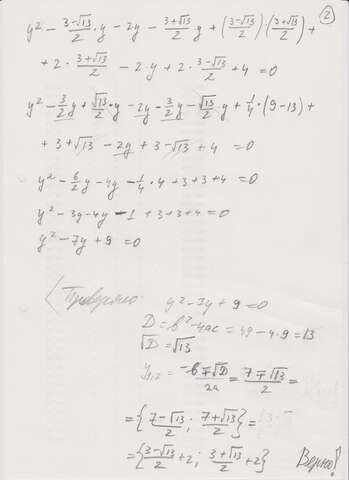 ②
y² - (3-√13)/2 · y - 2y - (3+√13)/2 · y + ((3-√13)/2) · ((3+√13)/2) +
+ 2 · (3+√13)/2 - 2·y + 2 · (3-√13)/2 + 4 = 0
y² - 3/2 y + √13/2 · y - 2y - 3/2 y - √13/2 · y + 1/4 · (9-13) +
+ 3 + √13 - 2y + 3 - √13 + 4 = 0
y² - 6/2 y - 4y - 1/4 · 4 + 3 + 3 + 4 = 0
y² - 3y - 4y - 1 + 3 + 3 + 4 = 0
y² - 7y + 9 = 0
Проверяю: y² - 7y + 9 = 0
D = b² - 4ac = 49 - 4·9 = 13
√D = √13
y₁,₂ = (-b∓√D)/2a = (7∓√13)/2 =
= {(7-√13)/2 ; (7+√13)/2} =
= {(3-√13)/2 + 2 ; (3+√13)/2 + 2} Верно!